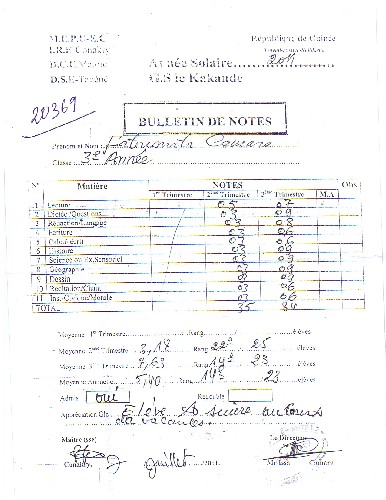 M.E.P.U-E.C République de Guinée
I.R.E Conakry
D.C.E Matoto Année Scolaire 2011
D.S.E G.S le Kakande
20369
BULLETIN DE NOTES
Prénom et Nom Camara
Classe 3e Année
N° Matière NOTES Obs
1er Trimestre 2ème Trimestre 3ème Trimestre M.A
1 Lecture 05 07
2 Dictée/Questions 03 09
3 Rédaction/Langage 03 08
4 Ecriture 03 06
5 Calcul écrit 03 06
6 Histoire 03 09
7 Science ou Ex.Sensoriel 03 09
8 Géographie 03 09
9 Dessin 09
10 Récitation/Chant 03 06
11 Inst-Civique/Morale 03 06
TOTAL 35 84
Moyenne 1er Trimestre Rang élèves
Moyenne 2ème Trimestre 3,18 Rang 22e 25 élèves
Moyenne 3ème Trimestre Rang 14e 23 élèves
Moyenne Annuelle 5,40 Rang 14e 23 élèves
Admis oui Redouble
Appréciation Gle Elève A suivre au cours
de vacances.
Maître (sse) Le Directeur
Conakry juillet 2011
Camara